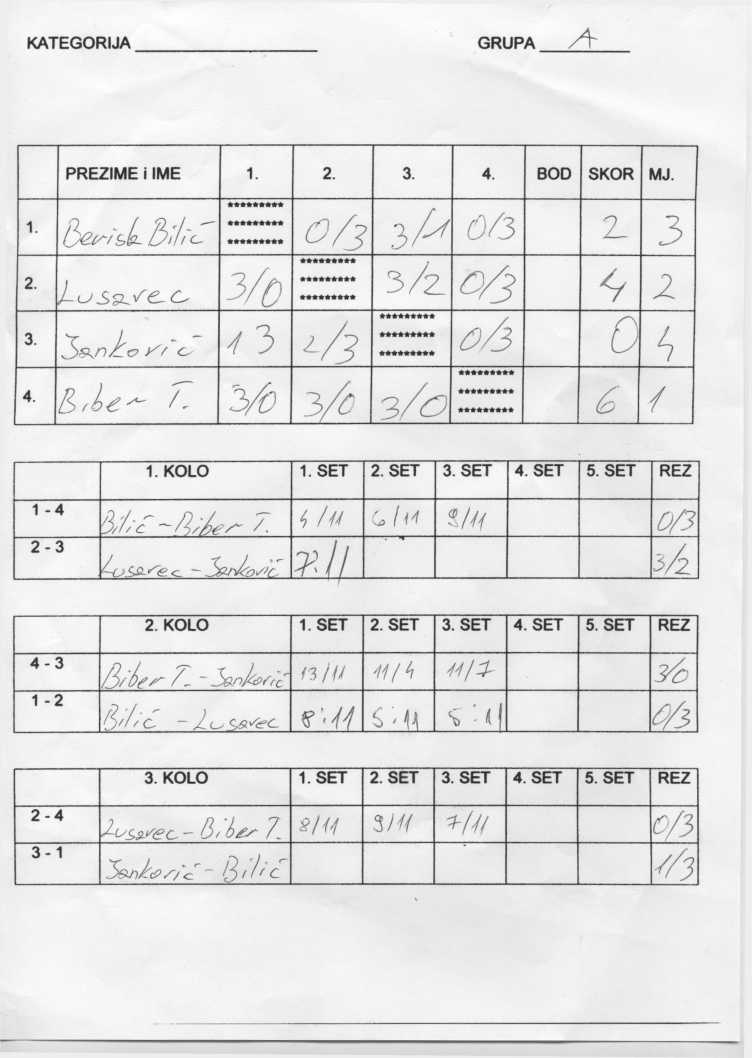 KATEGORIJA ____________ GRUPA A
PREZIME i IME 1. 2. 3. 4. BOD SKOR MJ.
*********
1. Berisk Bilić ********* 0/3 3/1 0/3 2 3
*********
*********
2. Lusavec 3/0 ********* 3/2 0/3 4 2
*********
*********
3. Janković 1 3 2/3 ********* 0/3 0 4
*********
*********
4. Biber T. 3/0 3/0 3/0 ********* 6 1
*********
1. KOLO 1. SET 2. SET 3. SET 4. SET 5. SET REZ
1 - 4 Bilić - Biber T. 4/11 6/11 9/11 0/3
2 - 3 Lusavec - Janković 7:11 3/2
2. KOLO 1. SET 2. SET 3. SET 4. SET 5. SET REZ
4 - 3 Biber T. - Janković 13/11 11/4 11/7 3/0
1 - 2 Bilić - Lusavec 8:11 5:11 5:11 0/3
3. KOLO 1. SET 2. SET 3. SET 4. SET 5. SET REZ
2 - 4 Lusavec - Biber T. 8/11 9/11 7/11 0/3
3 - 1 Janković - Bilić 1/3